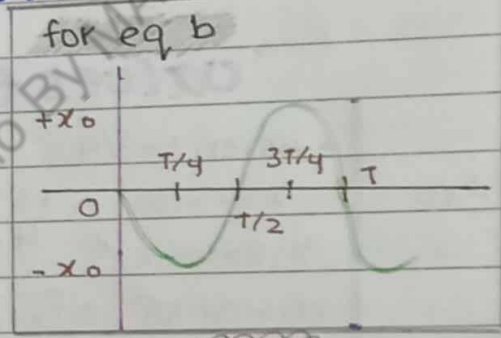 for eq b
+x₀
T/4 3T/4 T
0
T/2
-x₀